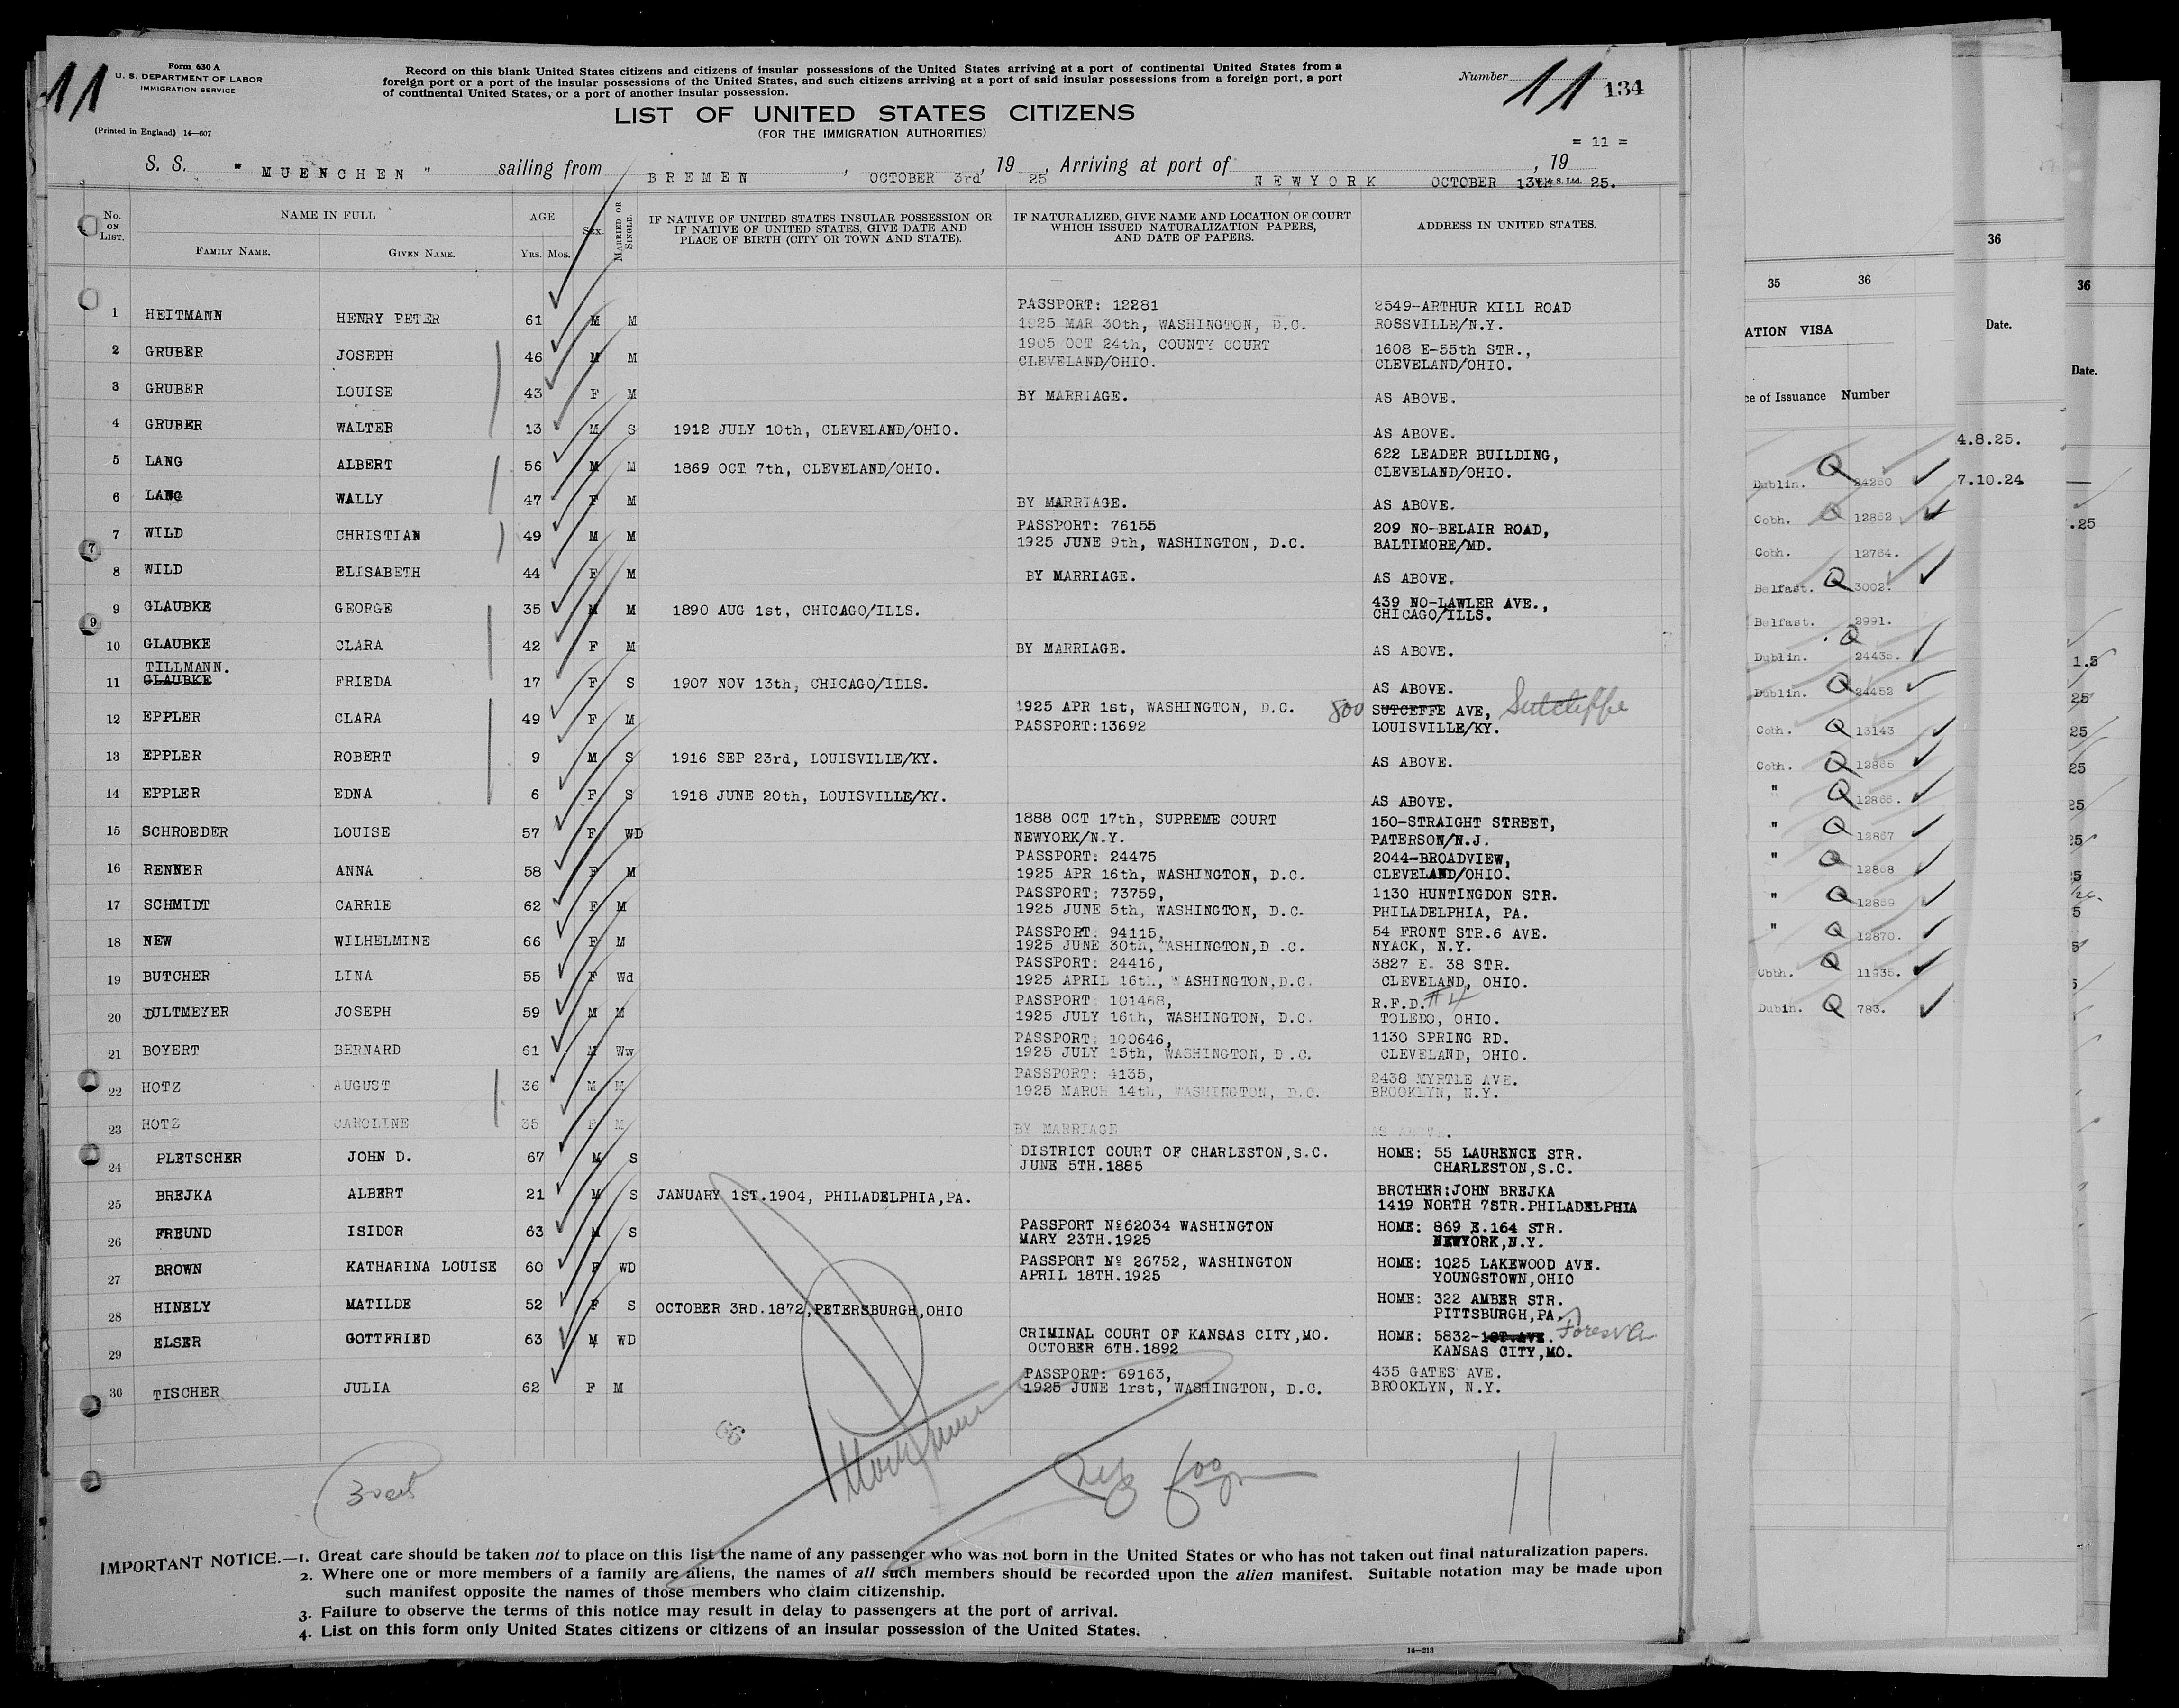 11
Form 630 A
U. S. DEPARTMENT OF LABOR
IMMIGRATION SERVICE
(Printed in England) 14—607
Record on this blank United States citizens and citizens of insular possessions of the United States arriving at a port of continental United States from a
foreign port or a port of the insular possessions of the United States, and such citizens arriving at a port of said insular possessions from a foreign port, a port
of continental United States, or a port of another insular possession.
Number 11 134
LIST OF UNITED STATES CITIZENS
(FOR THE IMMIGRATION AUTHORITIES)
= 11 =
S. S. " MUENCHEN " sailing from BREMEN, OCTOBER 3rd, 1925, Arriving at port of NEWYORK OCTOBER 13th, 19 25.
No. ON LIST.
NAME IN FULL
FAMILY NAME.
GIVEN NAME.
AGE
YRS. MOS.
SEX.
MARRIED OR SINGLE.
IF NATIVE OF UNITED STATES INSULAR POSSESSION OR
IF NATIVE OF UNITED STATES, GIVE DATE AND
PLACE OF BIRTH (CITY OR TOWN AND STATE).
IF NATURALIZED, GIVE NAME AND LOCATION OF COURT
WHICH ISSUED NATURALIZATION PAPERS,
AND DATE OF PAPERS.
ADDRESS IN UNITED STATES.
1 HEITMANN HENRY PETER 61 M M PASSPORT: 12281 2549-ARTHUR KILL ROAD
1925 MAR 30th, WASHINGTON, D.C. ROSSVILLE/N.Y.
2 GRUBER JOSEPH 46 M M 1905 OCT 24th, COUNTY COURT 1608 E-55th STR.,
CLEVELAND/OHIO. CLEVELAND/OHIO.
3 GRUBER LOUISE 43 F M BY MARRIAGE. AS ABOVE.
4 GRUBER WALTER 13 M S 1912 JULY 10th, CLEVELAND/OHIO. AS ABOVE.
5 LANG ALBERT 56 M M 1869 OCT 7th, CLEVELAND/OHIO. 622 LEADER BUILDING,
CLEVELAND/OHIO.
6 LANG WALLY 47 F M BY MARRIAGE. AS ABOVE.
7 WILD CHRISTIAN 49 M M PASSPORT: 76155 209 NO-BELAIR ROAD,
1925 JUNE 9th, WASHINGTON, D.C. BALTIMORE/MD.
8 WILD ELISABETH 44 F M BY MARRIAGE. AS ABOVE.
9 GLAUBKE GEORGE 35 M M 1890 AUG 1st, CHICAGO/ILLS. 439 NO-LAWLER AVE.,
CHICAGO/ILLS.
10 GLAUBKE CLARA 42 F M BY MARRIAGE. AS ABOVE.
TILLMANN.
11 GLAUBKE FRIEDA 17 F S 1907 NOV 13th, CHICAGO/ILLS. AS ABOVE.
12 EPPLER CLARA 49 F M 1925 APR 1st, WASHINGTON, D.C. 800 SUTCEFFE AVE, Sutcliffe
PASSPORT:13692 LOUISVILLE/KY.
13 EPPLER ROBERT 9 M S 1916 SEP 23rd, LOUISVILLE/KY. AS ABOVE.
14 EPPLER EDNA 6 F S 1918 JUNE 20th, LOUISVILLE/KY. AS ABOVE.
15 SCHROEDER LOUISE 57 F WD 1888 OCT 17th, SUPREME COURT 150-STRAIGHT STREET,
NEWYORK/N.Y. PATERSON/N.J.
16 RENNER ANNA 58 F M PASSPORT: 24475 2044-BROADVIEW,
1925 APR 16th, WASHINGTON, D.C. CLEVELAND/OHIO.
17 SCHMIDT CARRIE 62 F M PASSPORT: 73759, 1130 HUNTINGDON STR.
1925 JUNE 5th, WASHINGTON, D.C. PHILADELPHIA, PA.
18 NEW WILHELMINE 66 F M PASSPORT: 94115, 54 FRONT STR.6 AVE.
1925 JUNE 30th, WASHINGTON,D .C. NYACK, N.Y.
19 BUTCHER LINA 55 F Wd PASSPORT: 24416, 3827 E. 38 STR.
1925 APRIL 16th, WASHINGTON,D.C. CLEVELAND, OHIO.
20 DULTMEYER JOSEPH 59 M M PASSPORT: 101468, R.F.D. #4
1925 JULY 16th, WASHINGTON, D.C. TOLEDO, OHIO.
21 BOYERT BERNARD 61 M Ww PASSPORT: 100646, 1130 SPRING RD.
1925 JULY 15th, WASHINGTON, D.C. CLEVELAND, OHIO.
22 HOTZ AUGUST 36 M M PASSPORT: 4135, 2438 MYRTLE AVE.
1925 MARCH 14th, WASHINGTON, D.C. BROOKLYN, N.Y.
23 HOTZ CAROLINE 35 F M BY MARRIAGE AS ABOVE.
24 PLETSCHER JOHN D. 67 M S DISTRICT COURT OF CHARLESTON,S.C. HOME: 55 LAURENCE STR.
JUNE 5TH.1885 CHARLESTON,S.C.
25 BREJKA ALBERT 21 M S JANUARY 1ST.1904, PHILADELPHIA,PA. BROTHER:JOHN BREJKA
1419 NORTH 7STR.PHILADELPHIA
26 FREUND ISIDOR 63 M S PASSPORT Nº62034 WASHINGTON HOME: 869 E.164 STR.
MARY 23TH.1925 NEWYORK,N.Y.
27 BROWN KATHARINA LOUISE 60 F WD PASSPORT Nº 26752, WASHINGTON HOME: 1025 LAKEWOOD AVE.
APRIL 18TH.1925 YOUNGSTOWN,OHIO
28 HINELY MATILDE 52 F S OCTOBER 3RD.1872,PETERSBURGH,OHIO HOME: 322 AMBER STR.
PITTSBURGH,PA.
29 ELSER GOTTFRIED 63 M WD CRIMINAL COURT OF KANSAS CITY,MO. HOME: 5832-1ST.AVE.
OCTOBER 6TH.1892 KANSAS CITY,MO.
30 TISCHER JULIA 62 F M PASSPORT: 69163, 435 GATES AVE.
1925 JUNE 1rst, WASHINGTON, D.C. BROOKLYN, N.Y.
11
IMPORTANT NOTICE.—1. Great care should be taken not to place on this list the name of any passenger who was not born in the United States or who has not taken out final naturalization papers.
2. Where one or more members of a family are aliens, the names of all such members should be recorded upon the alien manifest. Suitable notation may be made upon
such manifest opposite the names of those members who claim citizenship.
3. Failure to observe the terms of this notice may result in delay to passengers at the port of arrival.
4. List on this form only United States citizens or citizens of an insular possession of the United States.
14—213
35 36
ATION VISA
ce of Issuance Number
Dublin. 24260
Cobh. 12862
Cobh. 12764.
Belfast. 3002.
Belfast. 2991.
Dublin. 24435.
Dublin. 24452
Cobh. 13143
Cobh. 12865
" 12866.
" 12867
" 12868
" 12869
" 12870.
Cobh. 11935.
Dubin. 783.
36
Date.
4.8.25.
7.10.24
36
Date.
.25
1.5
25
25
25
25
25